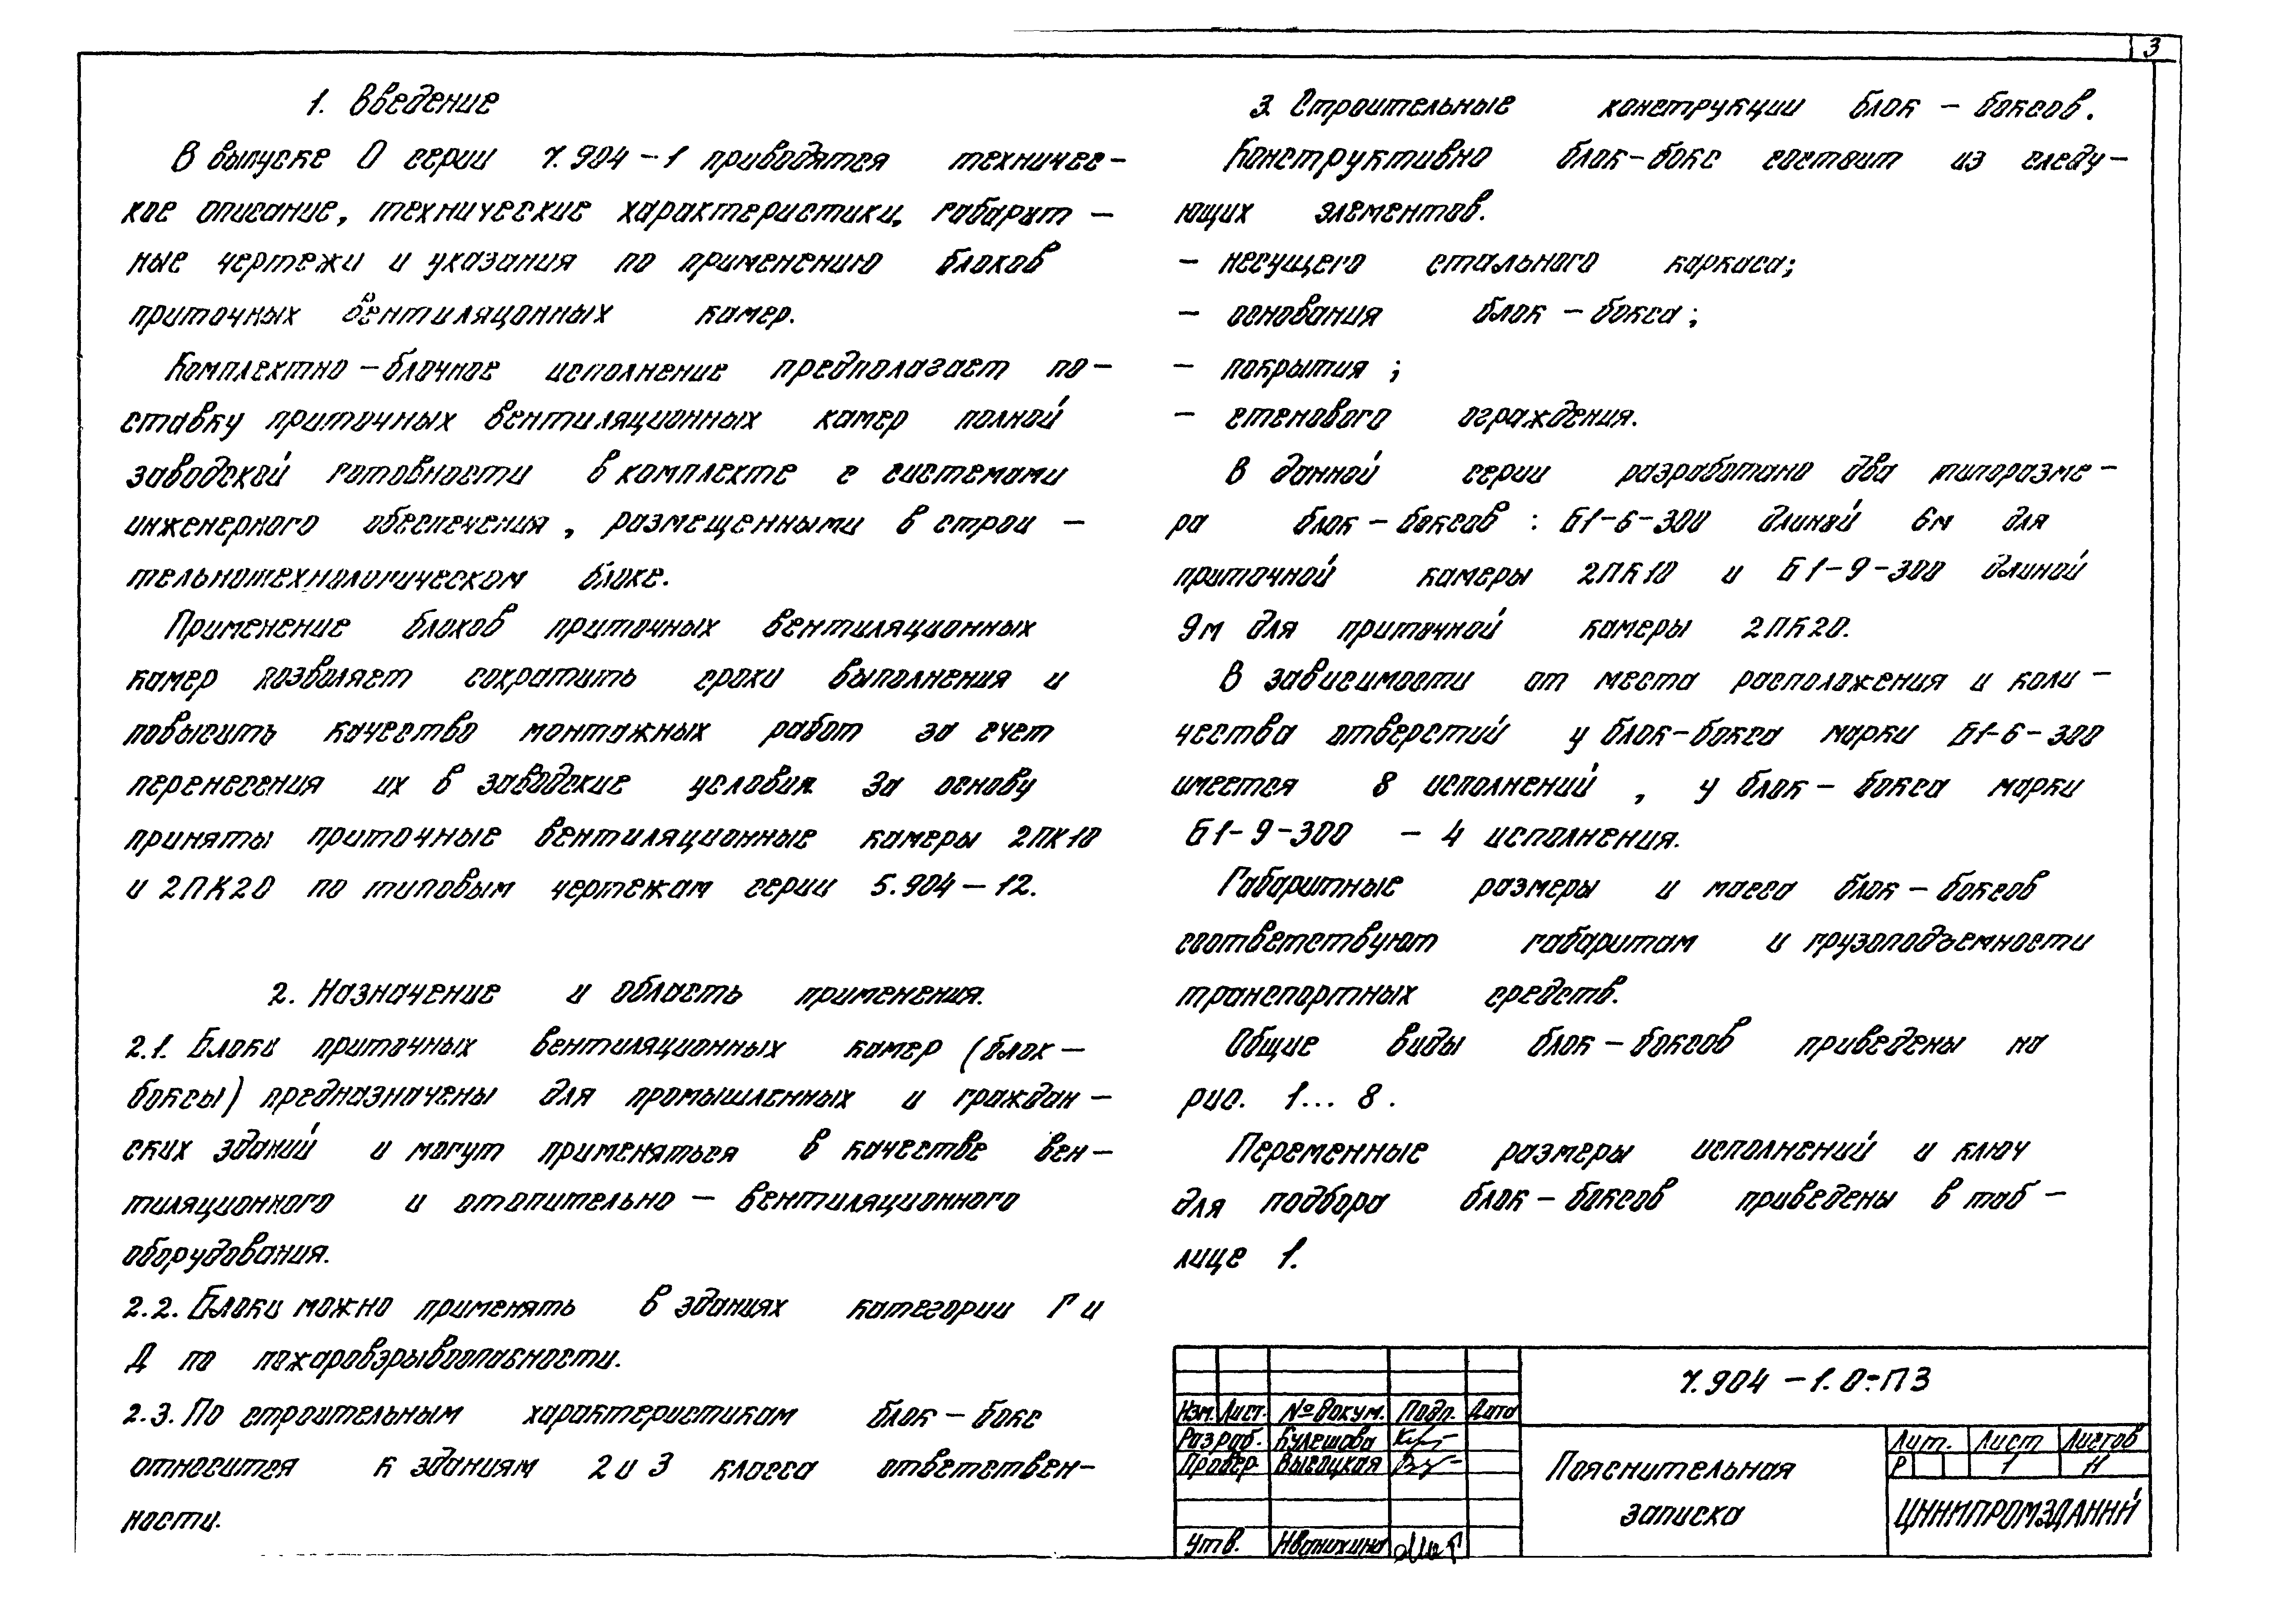 3
1. Введение
В выпуске 0 серии 7.904-1 приводятся техничес-
кое описание, технические характеристики, габарит-
ные чертежи и указания по применению блоков
приточных вентиляционных камер.
Комплектно-блочное исполнение предполагает по-
ставку приточных вентиляционных камер полной
заводской готовности в комплекте с системами
инженерного обеспечения, размещенными в строи-
тельнотехнологическом блоке.
Применение блоков приточных вентиляционных
камер позволяет сократить сроки выполнения и
повысить качество монтажных работ за счет
перенесения их в заводские условия. За основу
приняты приточные вентиляционные камеры 2ПК10
и 2ПК20 по типовым чертежам серии 5.904-12.
2. Назначение и область применения.
2.1. Блоки приточных вентиляционных камер (блок-
боксы) предназначены для промышленных и граждан-
ских зданий и могут применяться в качестве вен-
тиляционного и отопительно-вентиляционного
оборудования.
2.2. Блоки можно применять в зданиях категории Г и
Д по пожаровзрывоопасности.
2.3. По строительным характеристикам блок-бокс
относится к зданиям 2 и 3 класса ответствен-
ности.
3. Строительные конструкции блок-боксов.
Конструктивно блок-бокс состоит из следу-
ющих элементов.
- несущего стального каркаса;
- основания блок-бокса;
- покрытия;
- стенового ограждения.
В данной серии разработано два типоразме-
ра блок-боксов: Б1-6-300 длиной 6м для
приточной камеры 2ПК10 и Б1-9-300 длиной
9м для приточной камеры 2ПК20.
В зависимости от места расположения и коли-
чества отверстий у блок-бокса марки Б1-6-300
имеется 8 исполнений, у блок-бокса марки
Б1-9-300 - 4 исполнения.
Габаритные размеры и масса блок-боксов
соответствуют габаритам и грузоподъемности
транспортных средств.
Общие виды блок-боксов приведены на
рис. 1... 8.
Переменные размеры исполнений и ключ
для подбора блок-боксов приведены в таб-
лице 1.
7.904-1.0-ПЗ
Изм. Лист. № докум. Подп. Дата
Разраб. Кулешова
Провер Высоцкая
Утв. Иванихина
Пояснительная
записка
Лит. Лист Листов
Р 1 Н
ЦНИИПРОМЗДАНИЙ